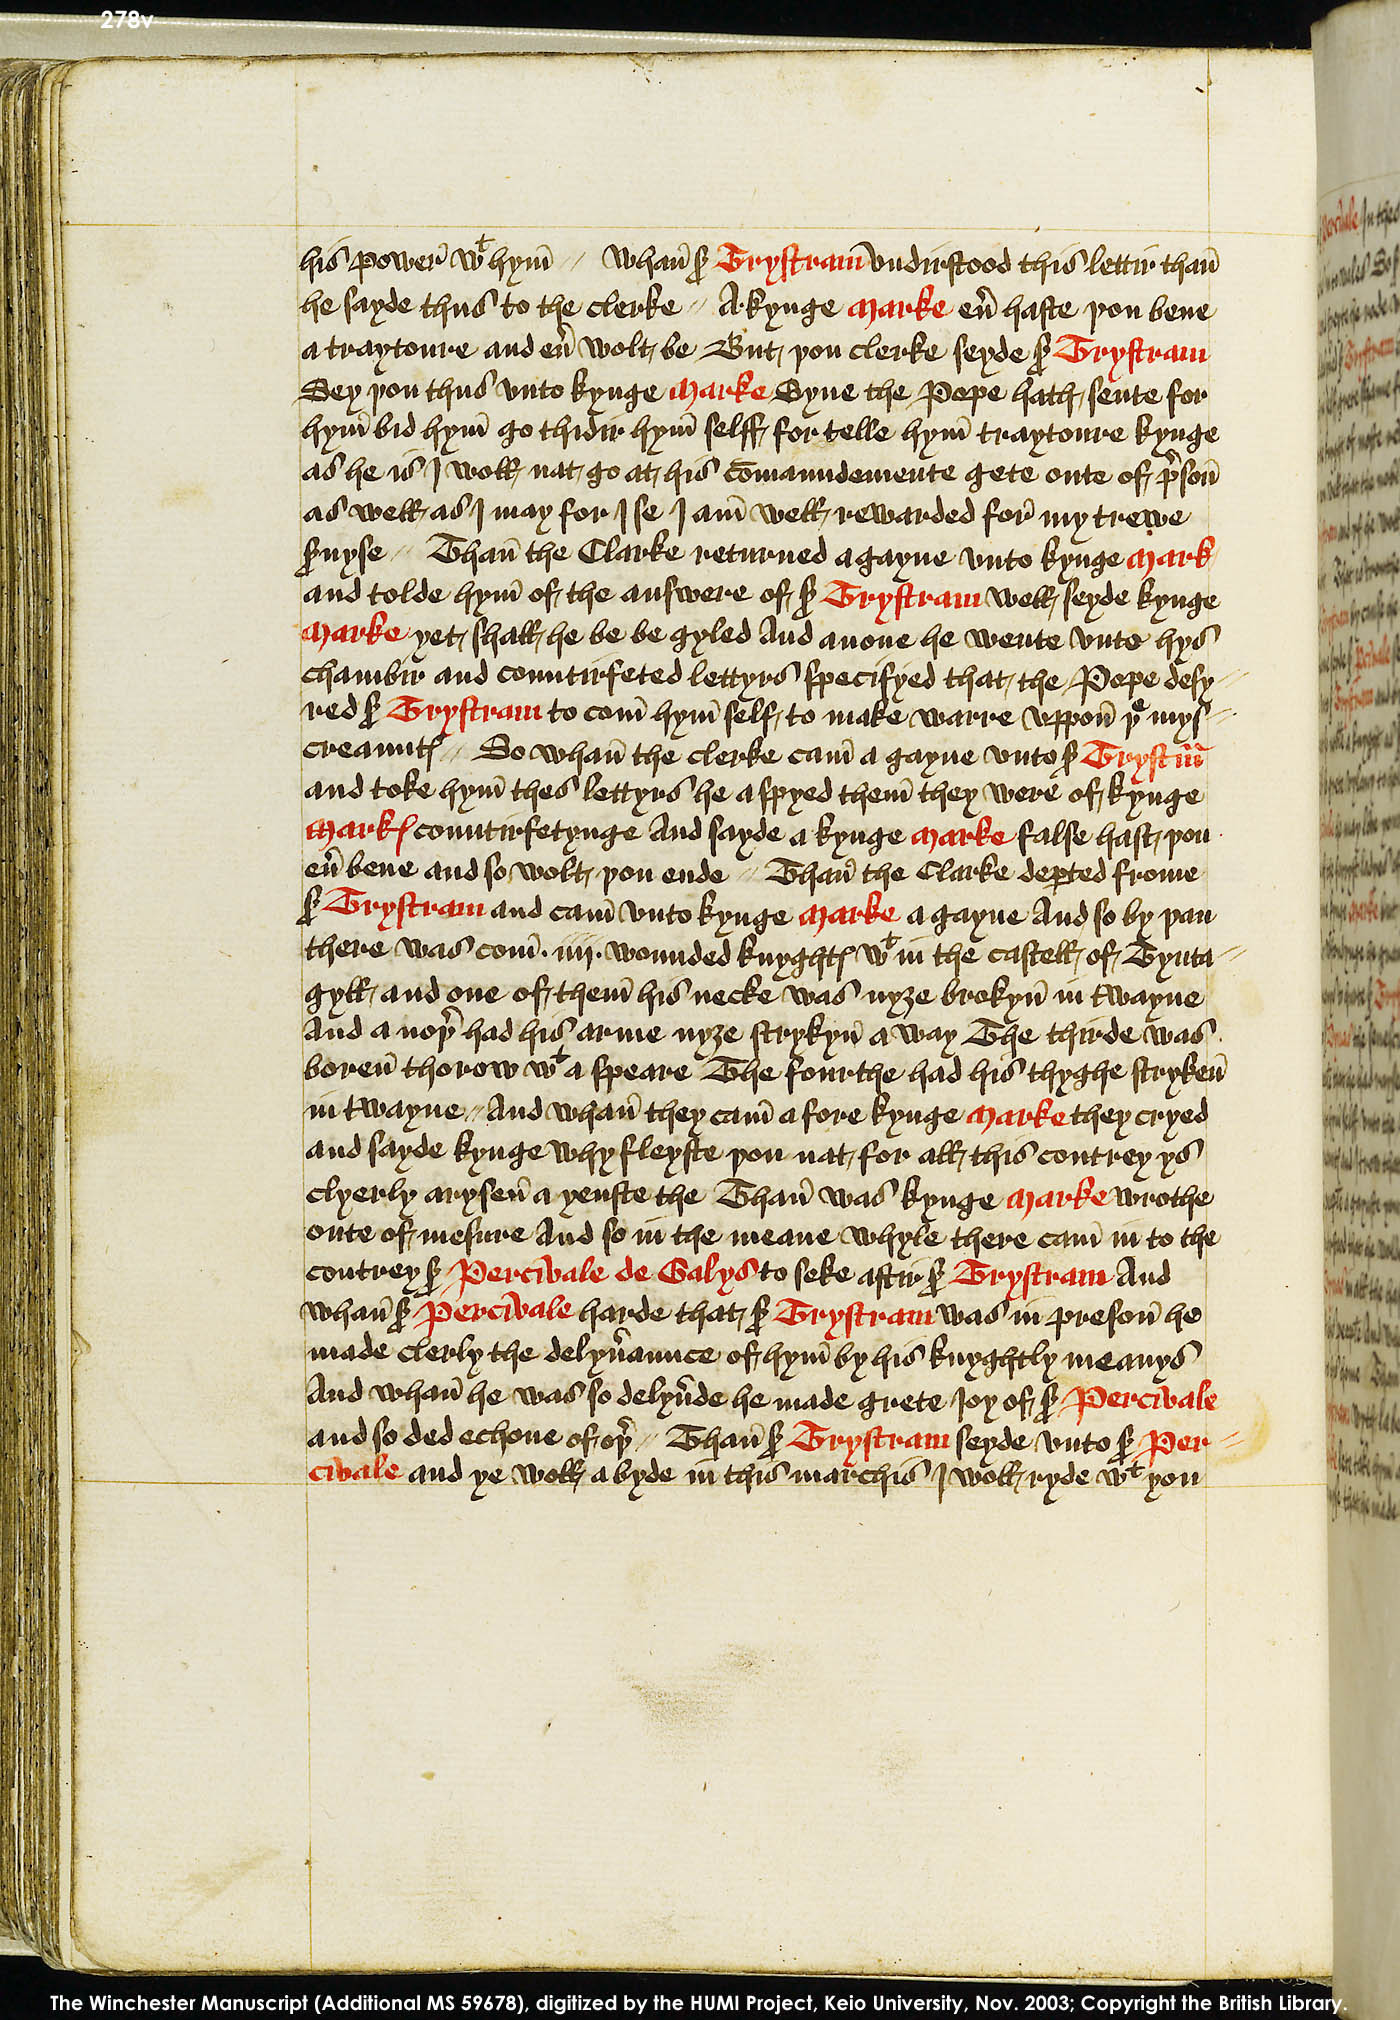 278v
his power̄ wᵗ hym̄ // Whan̄ ẜ Trystram̄ vndirstood this lettir than̄
he sayde thus to the clerke // A kynge Marke eu̾ haste þou bene
a traytoure and eu̾ wolt be But þou clerke seyde ẜ Trystram
Sey þou thus vnto kynge Marke Syne the Pope hath sente for
hym̄ bid hym̄ go thidir hym̄ selff for telle hym̄ traytoure kynge
as he is I woll nat go at his cōmaundemente gete oute of p̾son̄
as well as I may for I se I am̄ well rewarded for̄ my trewe
ẜuyse // Than̄ the Clarke returned agayne vnto kynge Mark
and tolde hym̄ of the answere of ẜ Trystram well seyde kynge
Marke yet shall he be be gyled And anone he wente vnto hys
chambir and countirfeted lettyrs specifyed that the Pope desy //
red ẜ Trystram to com̄ hym̄ self to make warre vppon̄ yᵉ mys //
creauntꝭ // So whan̄ the clerke cam̄ a gayne vnto ẜ Trystm̄
and toke hym̄ thes lettyrs he a spyed them̄ they were of kynge
Markꝭ countirfetynge And sayde a kynge Marke false hast þou
eu̾ bene and so wolt þou ende // Than̄ the Clarke deꝑted frome
ẜ Trystram and cam̄ vnto kynge Marke a gayne And so by þan
there was com̄ · iiij · wounded knyghtꝭ wᵗ in the castell of Tynta //
gyll and one of them̄ his necke was nyȝe brokyn̄ in twayne
And a noþ̾ had his arme nyȝe strykyn̄ a way The thirde was
boren̄ thorow wᵗ a speare The fourthe had his thyghe stryken̄
in twayne // And whan̄ they cam̄ a fore kynge Marke they cryed
and sayde kynge why fleyste þou nat for all this contrey ys
clyerly arysen̄ a yenste the Than̄ was kynge Marke wrothe
oute of mesure And so in the meane whyle there cam̄ in to the
contrey ẜ Percivale de Galys to seke aftir ẜ Trystram And
whan̄ ẜ Percivale harde that ẜ Trystram was in preson̄ he
made clerly the delyu̾aunce of hym̄ by his knyghtly meanys
And whan̄ he was so delyu̾de he made grete Joy of ẜ Percivale
and so ded echone of oþ̾ // Than̄ ẜ Trystram seyde vnto ẜ Per //
civale and ye woll a byde in this marchis I woll ryde wᵗ you
The Winchester Manuscript (Additional MS 59678), digitized by the HUMI Project, Keio University, Nov. 2003; Copyright the British Library.